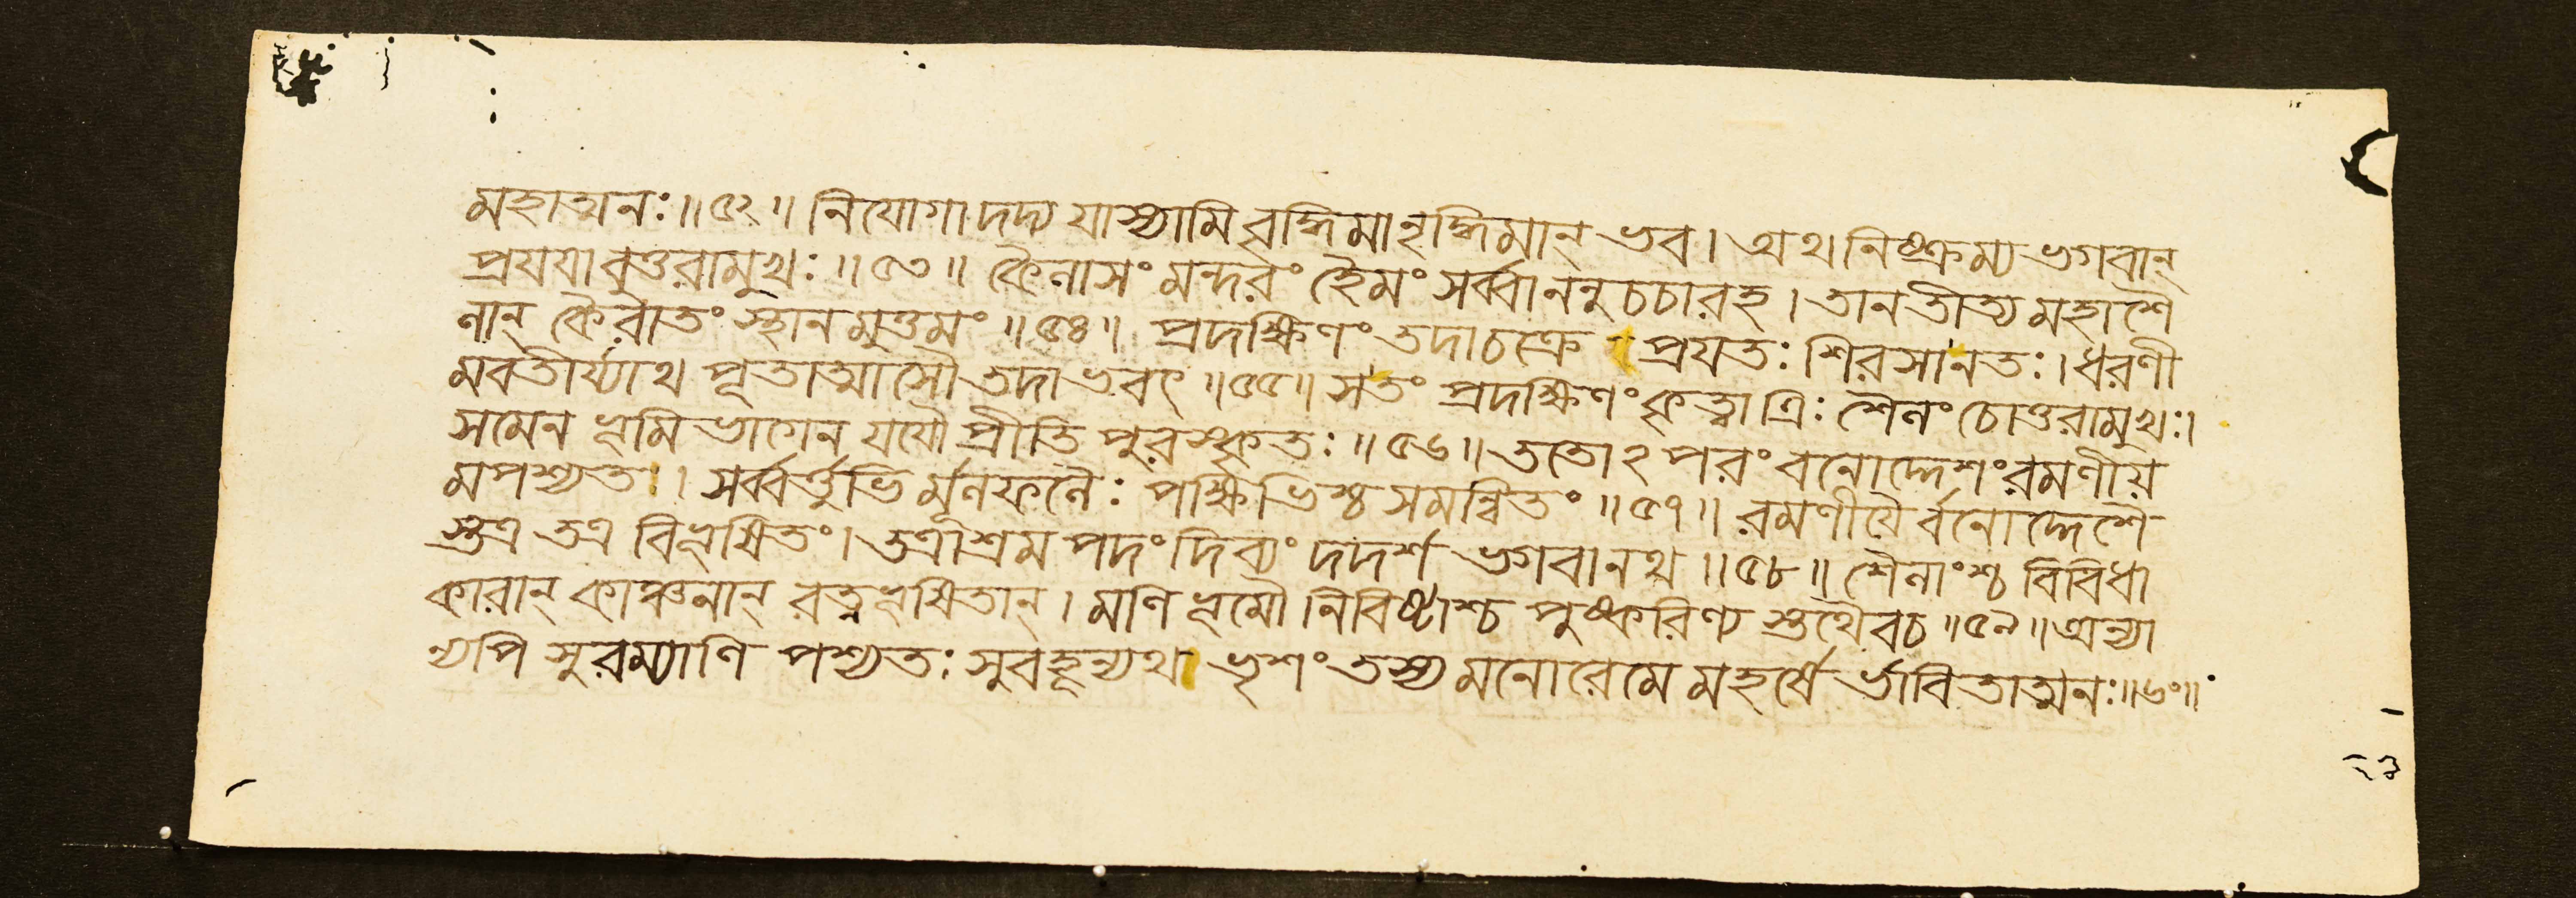 মহাত্মনঃ॥৫২॥ নিযোগাদদ্য যাস্যামি বৃদ্ধিমানৃদ্ধিমান্ ভব। অথ নিষ্ক্রম্য ভগবান্
প্রযযাবুত্তরামুখঃ॥৫৩॥ কৈলাসং মন্দরং হৈমং সর্ব্বাননুচচারহ। তানতীত্য মহাশৈ
লান্ কৈরাতং স্থানমুত্তমং॥৫৪॥ প্রদক্ষিণং তদাচক্রে প্রযতঃ শিরসানতঃ। ধরণী
মবতীর্য্যাথ পূতাত্মাসৌ তদাভবৎ॥৫৫॥ সতং প্রদক্ষিণং কৃত্বা ত্রিঃ শৈলং চোত্তরামুখঃ।
সমেন ভূমি ভাগেন যযৌ প্রীতি পুরস্কৃতঃ॥৫৬॥ ততোঽপরং বনোদ্দেশং রমণীয়
মপশ্যত। সর্ব্বর্ত্তুভি র্মূলফলৈঃ পক্ষিভিশ্চ সমন্বিতং॥৫৭॥ রমণীযৈর্বনোদ্দেশৈ
স্তত্র তত্র বিভূষিতং। তত্রাশ্রম পদং দিব্যং দদর্শ ভগবানথ॥৫৮॥ শৈলাংশ্চ বিবিধা
কারান্ কাঞ্চনান্ রত্নভূষিতান্। মণি ভূমৌ নিবিষ্টাশ্চ পুষ্করিণ্য স্তথৈবচ॥৫৯॥ অন্যা
ন্যপি সুরম্যাণি পশ্যতঃ সুবহূন্যথ। ভৃশং তস্য মনোরেমে মহর্ষে র্ভাবিতাত্মনঃ॥৬০॥